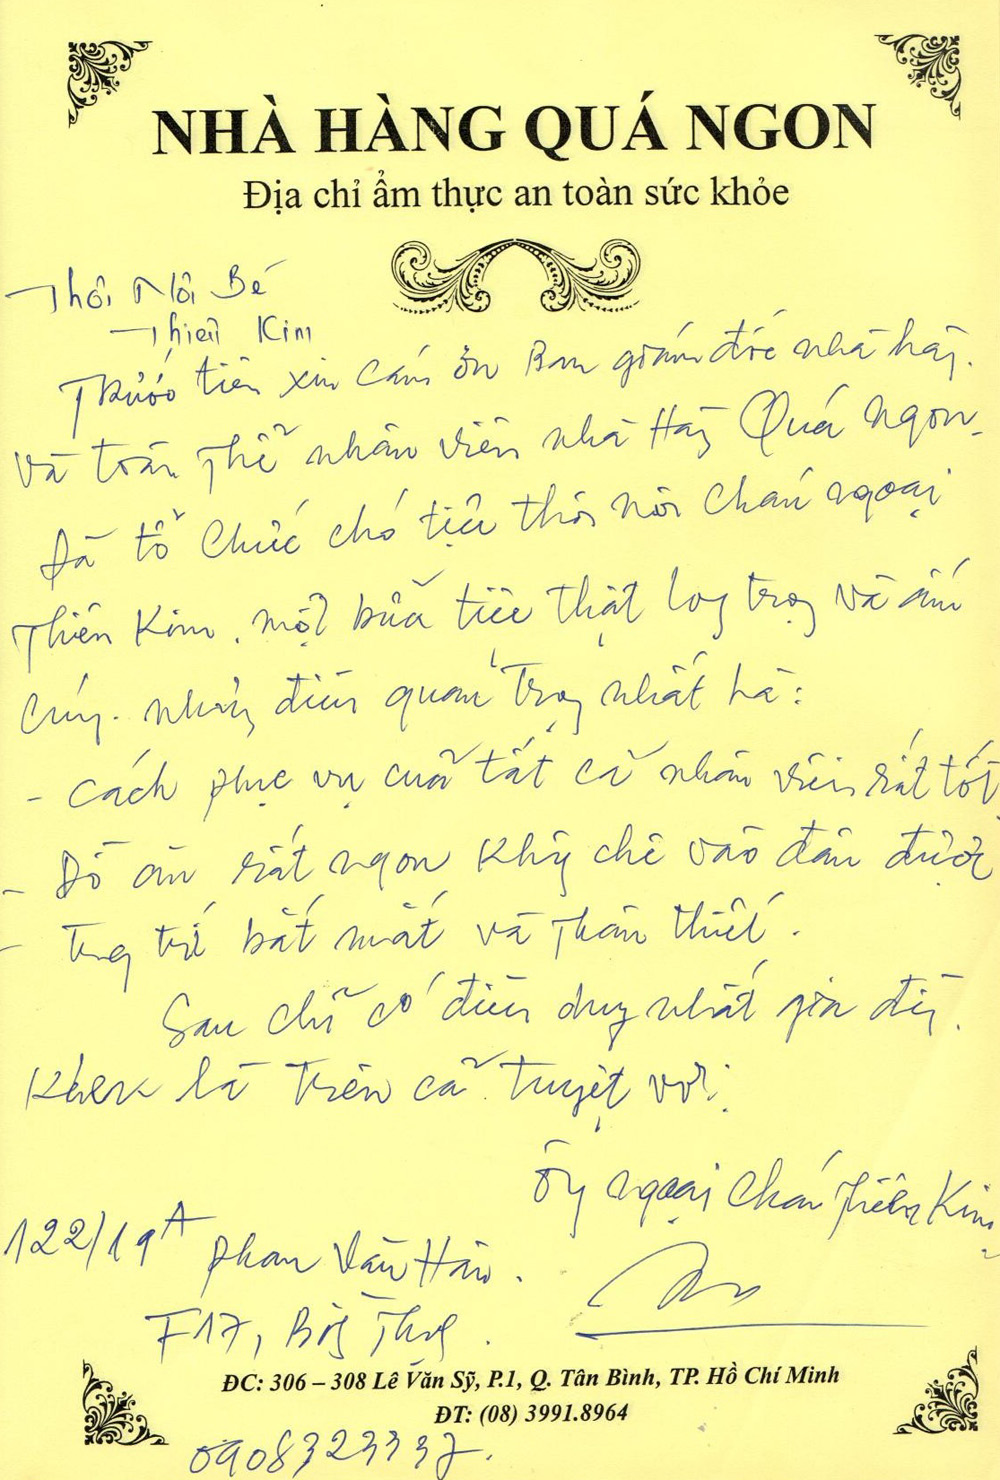 NHÀ HÀNG QUÁ NGON
Địa chỉ ẩm thực an toàn sức khỏe
Thôi Nôi Bé
Thiên Kim
Trước tiên xin cám ơn Ban giám đốc nhà hàg.
và toàn thể nhân viên nhà Hàg Quá Ngon.
Đã tổ chức chó tiệc thôi nôi cháu ngoại
Thiên Kim, một bữa tiệc thật log trọg và ấm
cúg. nhữg điều quan trọg nhất là:
- cách phục vụ cuã tất cã nhân viên rất tốt.
- Đồ ăn rất ngon khg chê vào đâu được
- Trg trí bắt mắt và thân thiết.
Sau chĩ có điều duy nhất gia đìh.
là trên cã tuyệt vời.
Ôg ngoại cháu Thiên Kim
122/19A Phan Văn Hân.
F17, Bìh Thạh.
ĐC: 306 – 308 Lê Văn Sỹ, P.1, Q. Tân Bình, TP. Hồ Chí Minh
ĐT: (08) 3991.8964
0908323337.